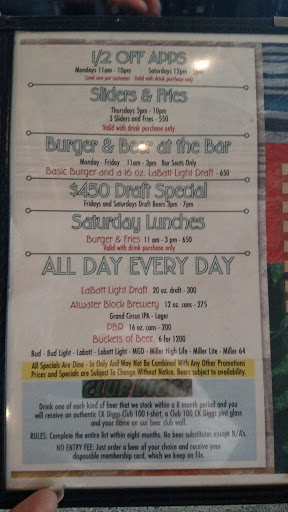 1/2 OFF APPS
Mondays 11am - 10pm Saturdays 12pm - 5pm
Limit one per customer - Valid with drink purchase only
Sliders & Fries
Thursdays 5pm - 10pm
3 Sliders and Fries - 550
Valid with drink purchase only
Burger & Beer at the Bar
Monday - Friday 11am - 3pm Bar Seats Only
Basic Burger and a 16 oz. LaBatt Light Draft - 650
$450 Draft Special
Fridays and Saturdays Draft Beers 3pm - 7pm
Saturday Lunches
Burger & Fries 11 am - 3 pm - 650
Valid with drink purchase only
ALL DAY EVERY DAY
LaBatt Light Draft 20 oz. draft - 300
Atwater Block Brewery 12 oz. cans - 275
Grand Circus IPA - Lager
PBR 16 oz. cans - 200
Buckets of Beer 6 for 1200
Bud - Bud Light - Labatt - Labatt Light - MGD - Miller High Life - Miller Lite - Miller 64
All Specials Are Dine - In Only And May Not Be Combined With Any Other Promotions
Prices and Specials are Subject To Change Without Notice. Beers subject to availability.
Drink one of each kind of beer that we stock within a 8 month period and you
will receive an authentic CK Diggs Club 100 t-shirt, a Club 100 CK Diggs pint glass
and your name on our beer club wall.
RULES: Complete the entire list within eight months. No beer substitutes except N/A's.
NO ENTRY FEE: Just order a beer of your choice and receive your
disposable membership card, which we keep on file.